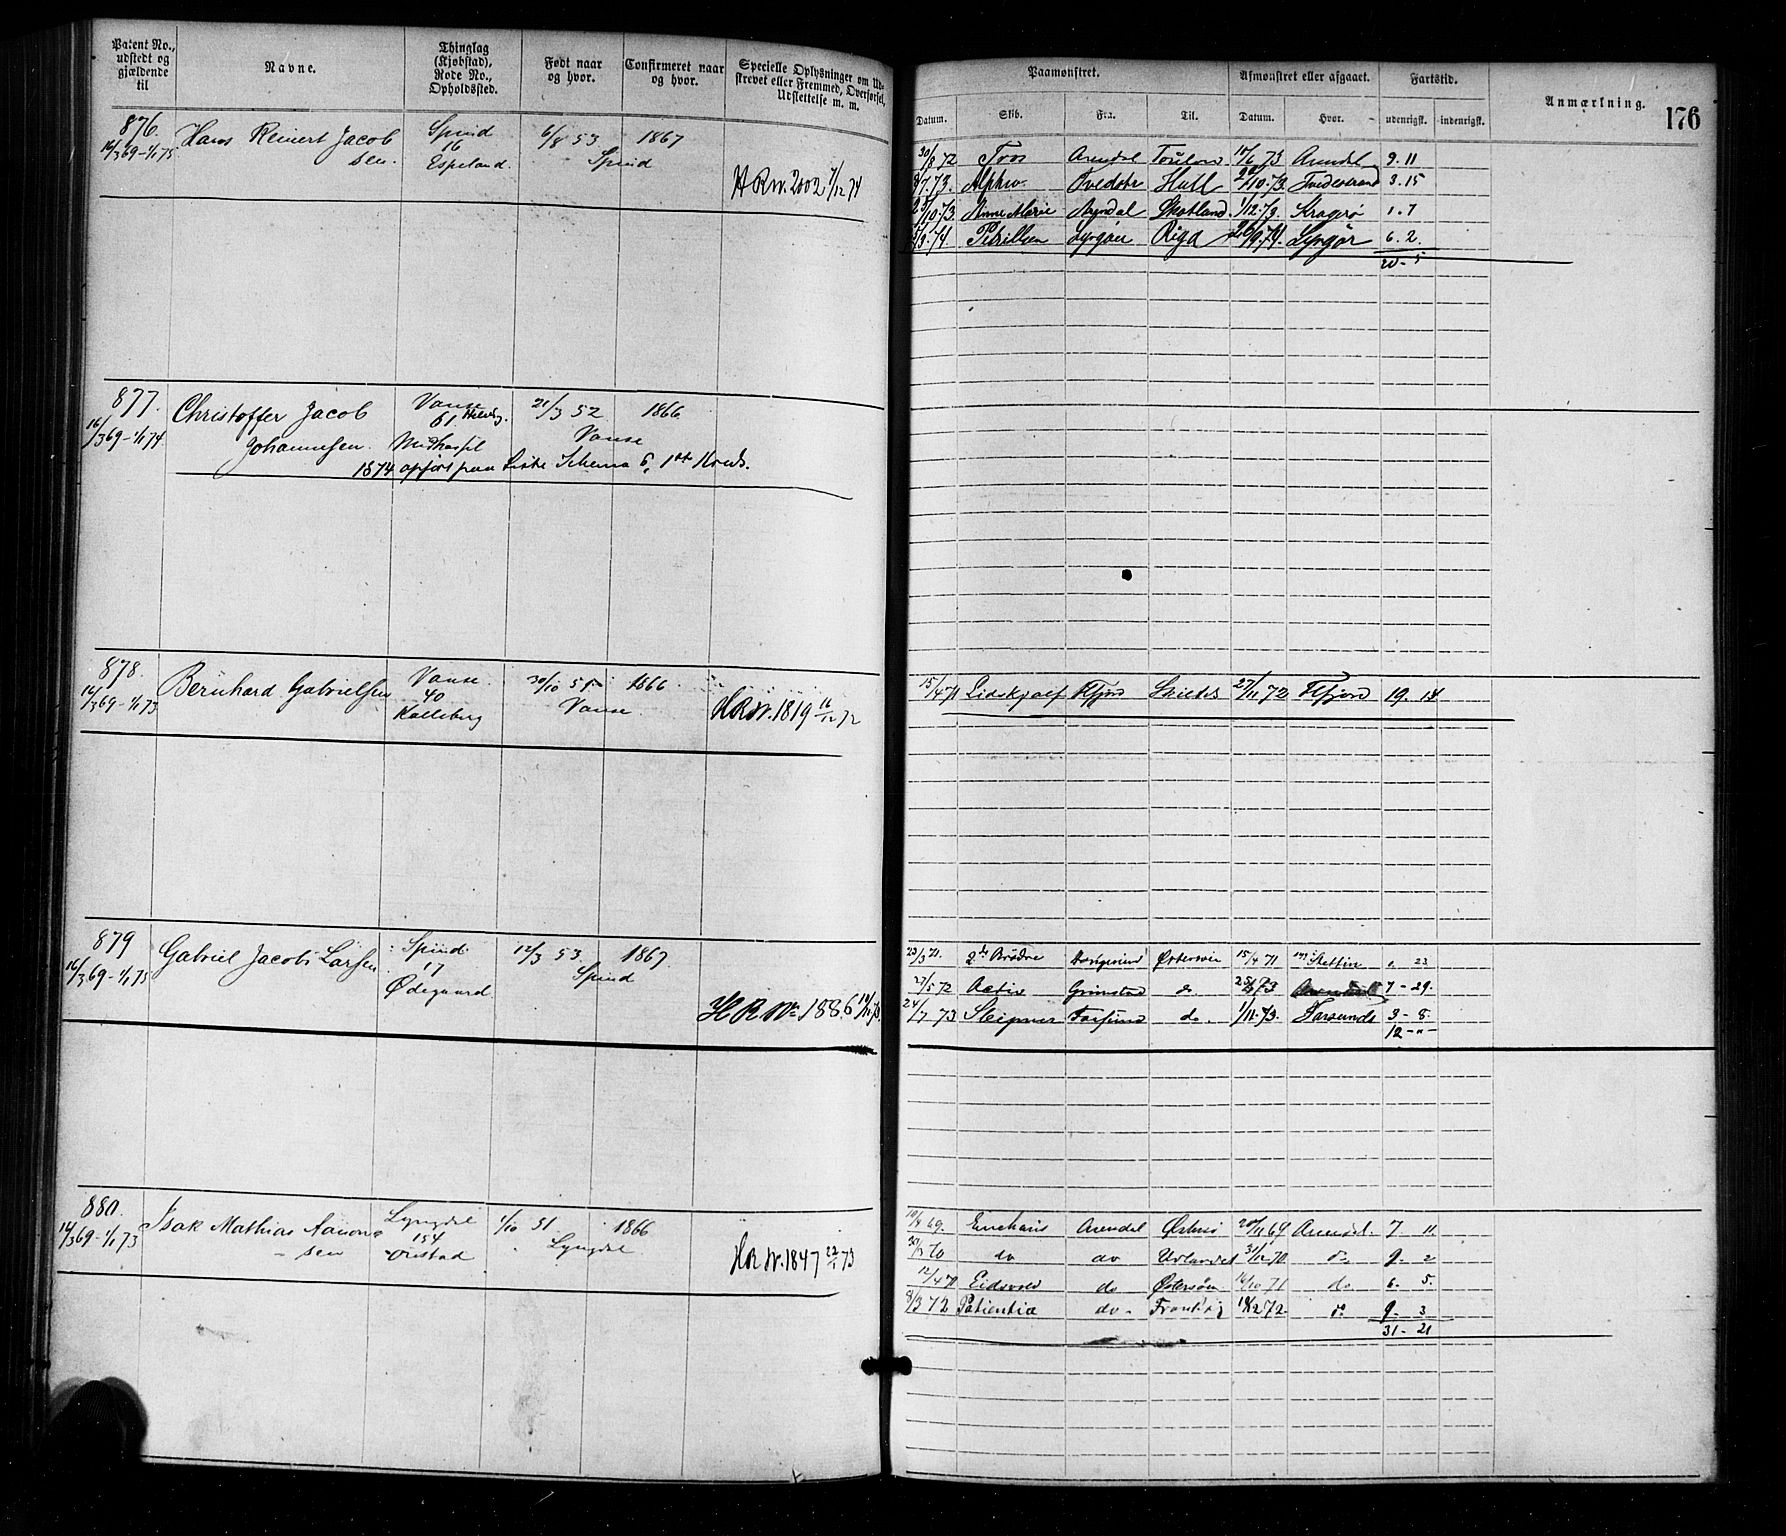 Patent No., udstedt og gjældende til
Navne.
Thinglag (Kjøbstad), Rode No., Opholdssted.
Født naar og hvor.
Confirmeret naar og hvor.
Specielle Oplysninger om Udskrevet eller Fremmed, Overførsel, Udslettelse m. m.
Paamønstret.
Afmønstret eller afgaaet.
Fartstid.
Anmærkning.
176
Datum. Skib. Fra. Til. Datum. Hvor. udenrigsk. indenrigsk.
876. Hans Reinert Jacob Spind 6/8 53 1867
16/3 69-1/1 75 sen. 16 Spind
Espeland.
H R N. 2002 7/12 74
30/8 72 Arendal Toulon 6 73 Arendal 9. 11
7. 73. Hull 10. 73. Tvedestrand 3. 15
10. 73. Anne Marie Skotland. 1/12. 73. Kragerø 1. 7
74. Riga 9. 74. Lyngør 6. 2.
20 - 5
877. Christoffer Jacob Vanse 21/3 52 1866
16/3 69-1/1 74 Johannesen. 61 Vanse
1874 opført paa Liste Schema 6, 1ste Kreds.
878. Bernhard Gabrielsen Vanse 30/10 51 1866
16/3 69-1/1 73 40 Vanse
Kalleberg
H R N. 1819 16/12 72
15/4 71 Lidskjalf Flfjord 27/11 72 Flfjord 19. 14
879 Gabriel Jacob Larsen Spind 12/3 53 1867
16/3 69-1/1 75 17 Spind
Ødegaard
H R No 1886
23/3 71. 2de Brødre Østersøen 15/4 71 Stettin " 23
27/5 72 Activ Grimstad do 73 7 - 29.
24/7 73 Sleipner Farsund do. 1/11. 73. Farsund 3 - 8.
12 - " -
880. Isak Mathias Aanon Lyngdal 1/10 51 1866
14/3 69-1/1 73 - sen 154 Lyngdal
H R N. 1847 22/1 73
69. Arendal 20/11 69 Arendal. 7 11.
30/3 70 do do Udlandet 31/12 70 do 9. 2
12/4 71 Eidsvold do Østersøen 16/10 71 do 6. 5.
8/3 72 Patientia do - 12 72. do 9. 3
31 - 21